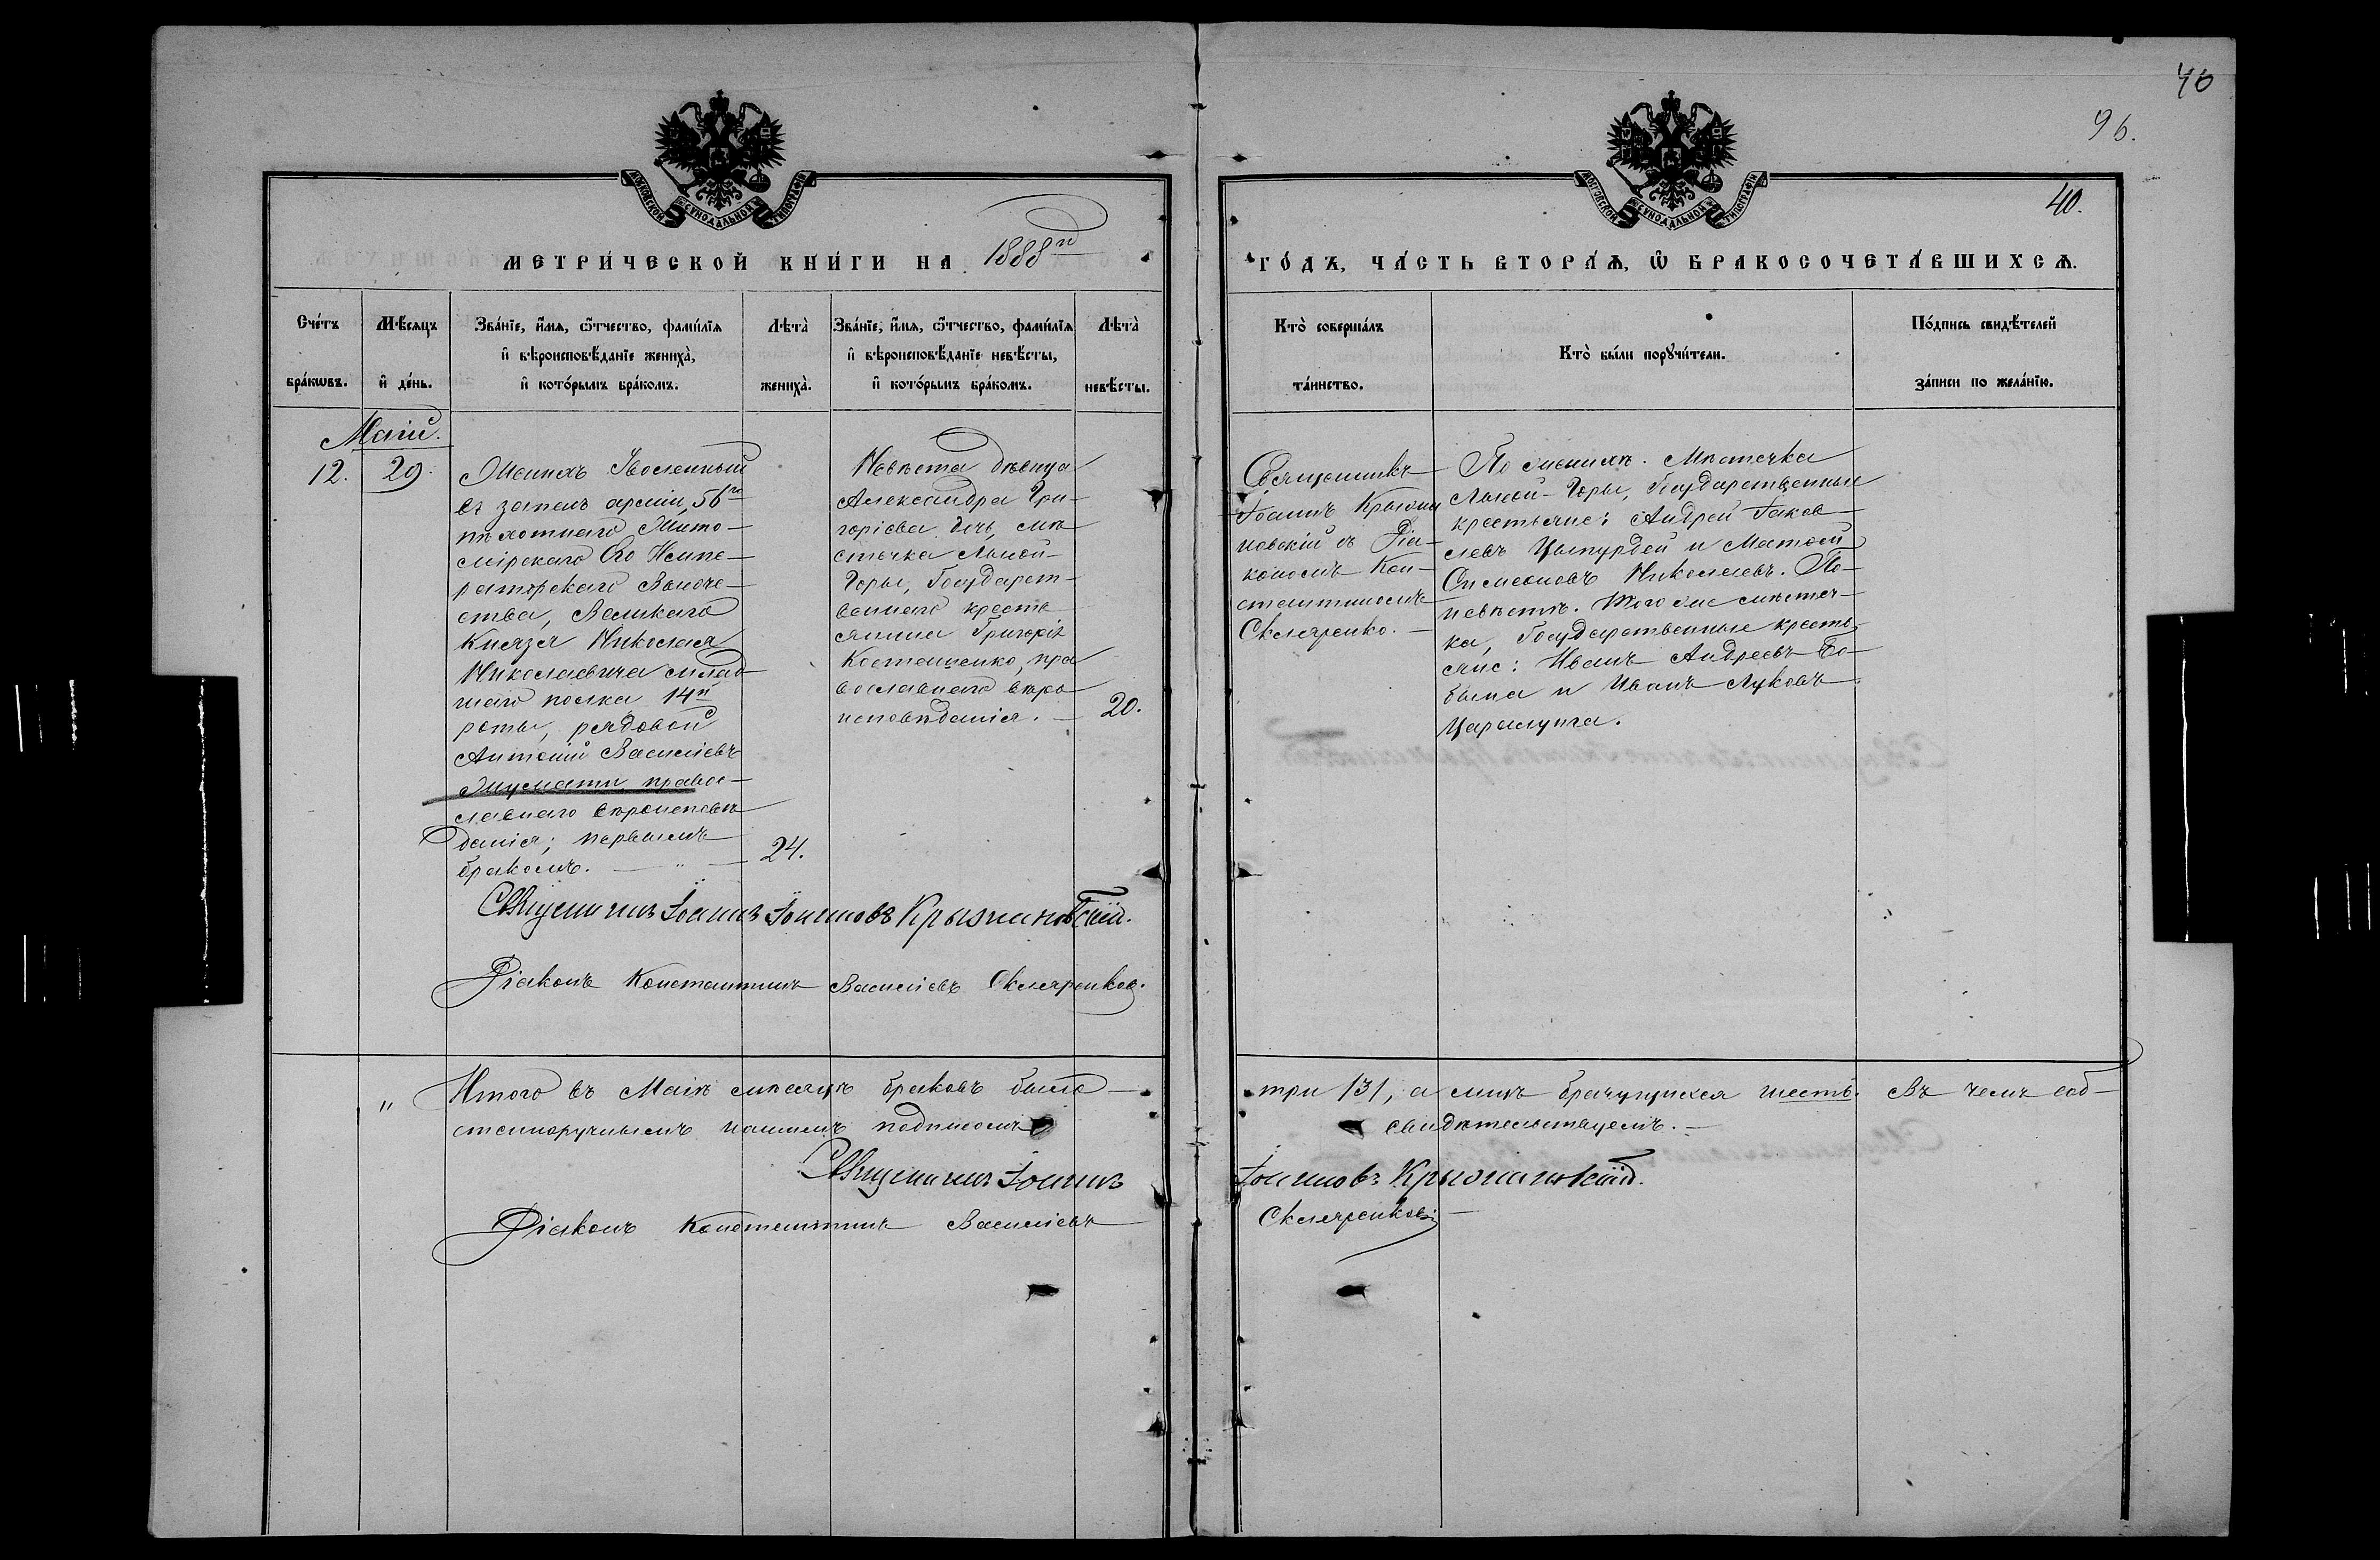 40
96.
МОСКОВСКОЙ СѴНОДАЛЬНОЙ ТИПОГРАФІИ
МОСКОВСКОЙ СѴНОДАЛЬНОЙ ТИПОГРАФІИ
40.
МЕТРИ́ЧЕСКОЙ КНИ́ГИ НА 1888й
ГО́ДЪ, ЧА́СТЬ ВТОРА́Ѧ, Ѡ҆ БРАКОСОЧЕТА́ВШИХСѦ.
Сче́тъ
бра́кѡвъ.
Мѣ́сяцъ
и҆ де́нь.
Зва́нїе, и҆́мѧ, ѻ҆́тчество, фами́лїѧ
и҆ вѣроисповѣ́данїе жениха̀,
и҆ кото́рымъ бра́комъ.
Лѣта̀
жениха̀.
Зва́нїе, и҆́мѧ, ѻ҆́тчество, фами́лїѧ
и҆ вѣроисповѣ́данїе невѣ́сты,
и҆ кото́рымъ бра́комъ.
Лѣта̀
невѣ́сты.
Кто̀ соверша́лъ
та́инство.
Кто̀ бы́ли порꙋчи́тели.
По́дпись свидѣ́телей
за́писи по жела́нїю.
Маій.
12.
29.
Женихъ Уволенный
въ запасъ арміи, 56го
пѣхотнаго Жито-
мірскаго Его Импе-
раторскаго Высоче-
ства, Великаго
Князя Николая
Николаевича млад-
шаго полка 14й
роты, рядовой
Антоній Василіевъ
правос-
лавнаго вѣроисповѣ
данія; первымъ
бракомъ. — " —
24.
Невѣста дѣвица
Александра Гри-
горіева дочь, мѣ
стечка Лысой-
Горы, Государст-
веннаго кресть
янина Григорія
Косташенко, пра
вославнаго вѣро
исповѣданія. —
20.
Священникъ
Іоаннъ Крыжа
новскій съ Діа-
кономъ Кон-
стантиномъ
Скляренко. —
По женихѣ. Мѣстечка
Лысой-Горы, Государственные
крестьяне: Андрей Іаков-
левъ Цыпурдей и Матѳей
Симеоновъ Николаевъ. По-
невѣстѣ. Того же мѣстеч-
ка, Государственные кресть-
яне: Иванъ Андреевъ Бо-
быка и Иванъ Луковъ
Царалунга.
Священникъ Іоаннъ Іоанновъ Крыжановскій.
Діаконъ Константинъ Василіевъ Скляренковъ.
" Итого въ Маіѣ мѣсяцѣ браковъ было —
три /3/, а лицъ брачущихся шесть. Въ чемъ соб-
ственноручнымъ нашимъ подписомъ
свидѣтельствуемъ. —
Священникъ Іоаннъ
Іоанновъ Крыжановскій.
Діаконъ Константинъ Василіевъ
Скляренковъ —